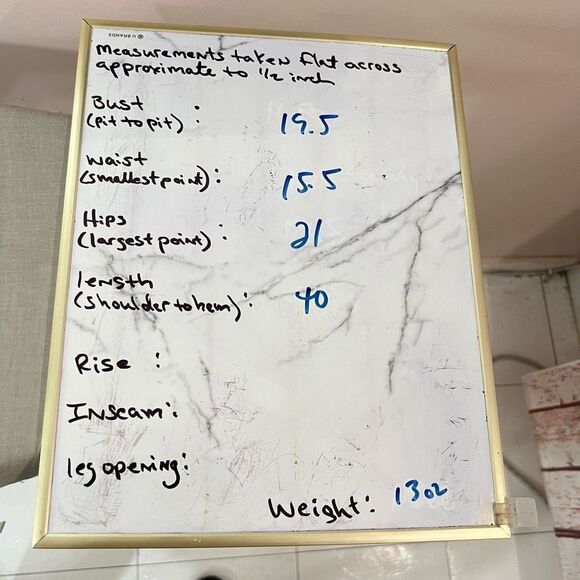 U BRANDS
measurements taken flat across
approximate to 1/2 inch
Bust :
(pit to pit) : 19.5
waist
(smallest point) : 15.5
Hips
(largest point) : 21
length
(shoulder to hem) : 40
Rise :
Inseam :
leg opening :
Weight : 13oz